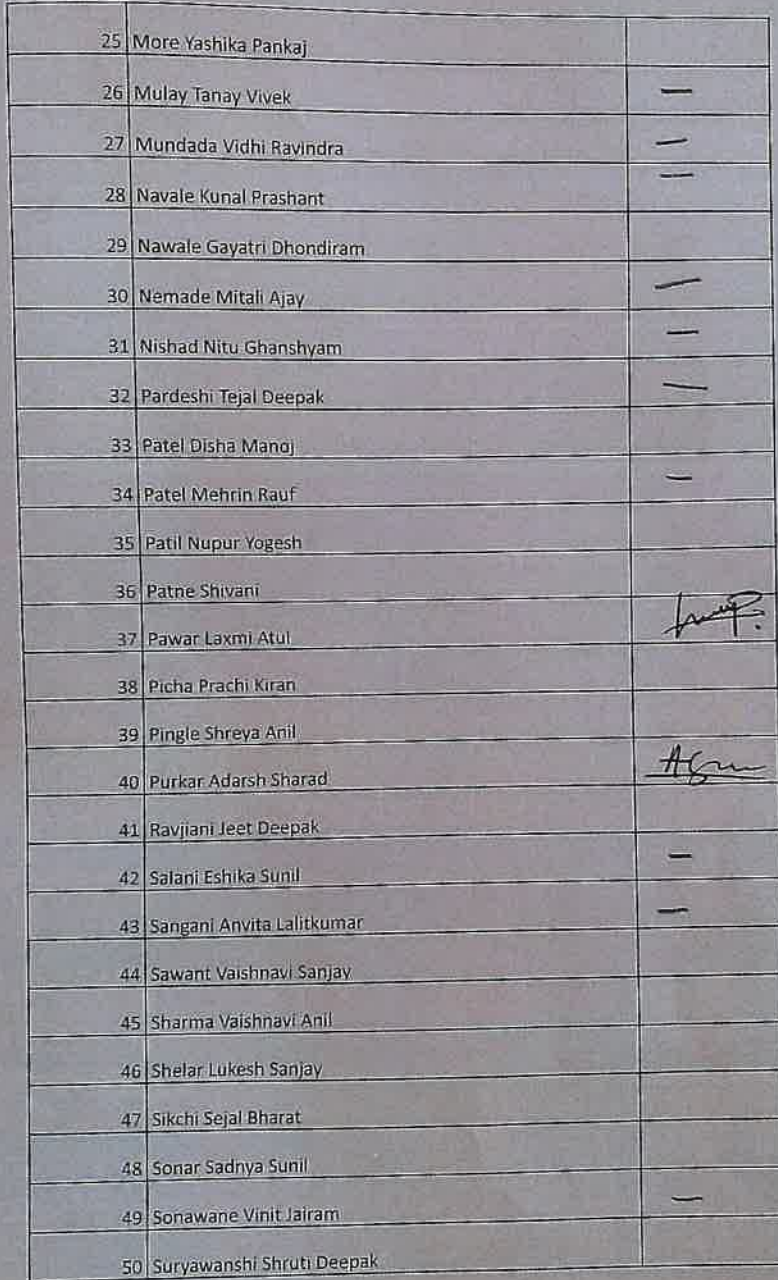 25 More Yashika Pankaj
26 Mulay Tanay Vivek —
27 Mundada Vidhi Ravindra —
28 Navale Kunal Prashant —
29 Nawale Gayatri Dhondiram
30 Nemade Mitali Ajay —
31 Nishad Nitu Ghanshyam —
32 Pardeshi Tejal Deepak —
33 Patel Disha Manoj
34 Patel Mehrin Rauf —
35 Patil Nupur Yogesh
36 Patne Shivani
37 Pawar Laxmi Atul
38 Picha Prachi Kiran
39 Pingle Shreya Anil
40 Purkar Adarsh Sharad
41 Ravjiani Jeet Deepak
42 Salani Eshika Sunil —
43 Sangani Anvita Lalitkumar —
44 Sawant Vaishnavi Sanjay
45 Sharma Vaishnavi Anil
46 Shelar Lukesh Sanjay
47 Sikchi Sejal Bharat
48 Sonar Sadnya Sunil
49 Sonawane Vinit Jairam —
50 Suryawanshi Shruti Deepak